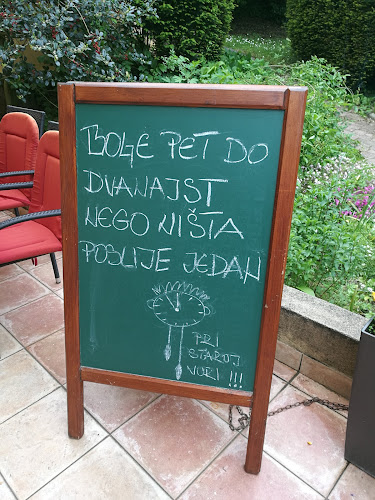 BOLJE PET DO
DVANAJST
NEGO NIŠTA
POSLIJE JEDAN
PRI
STAROJ
VURI !!!